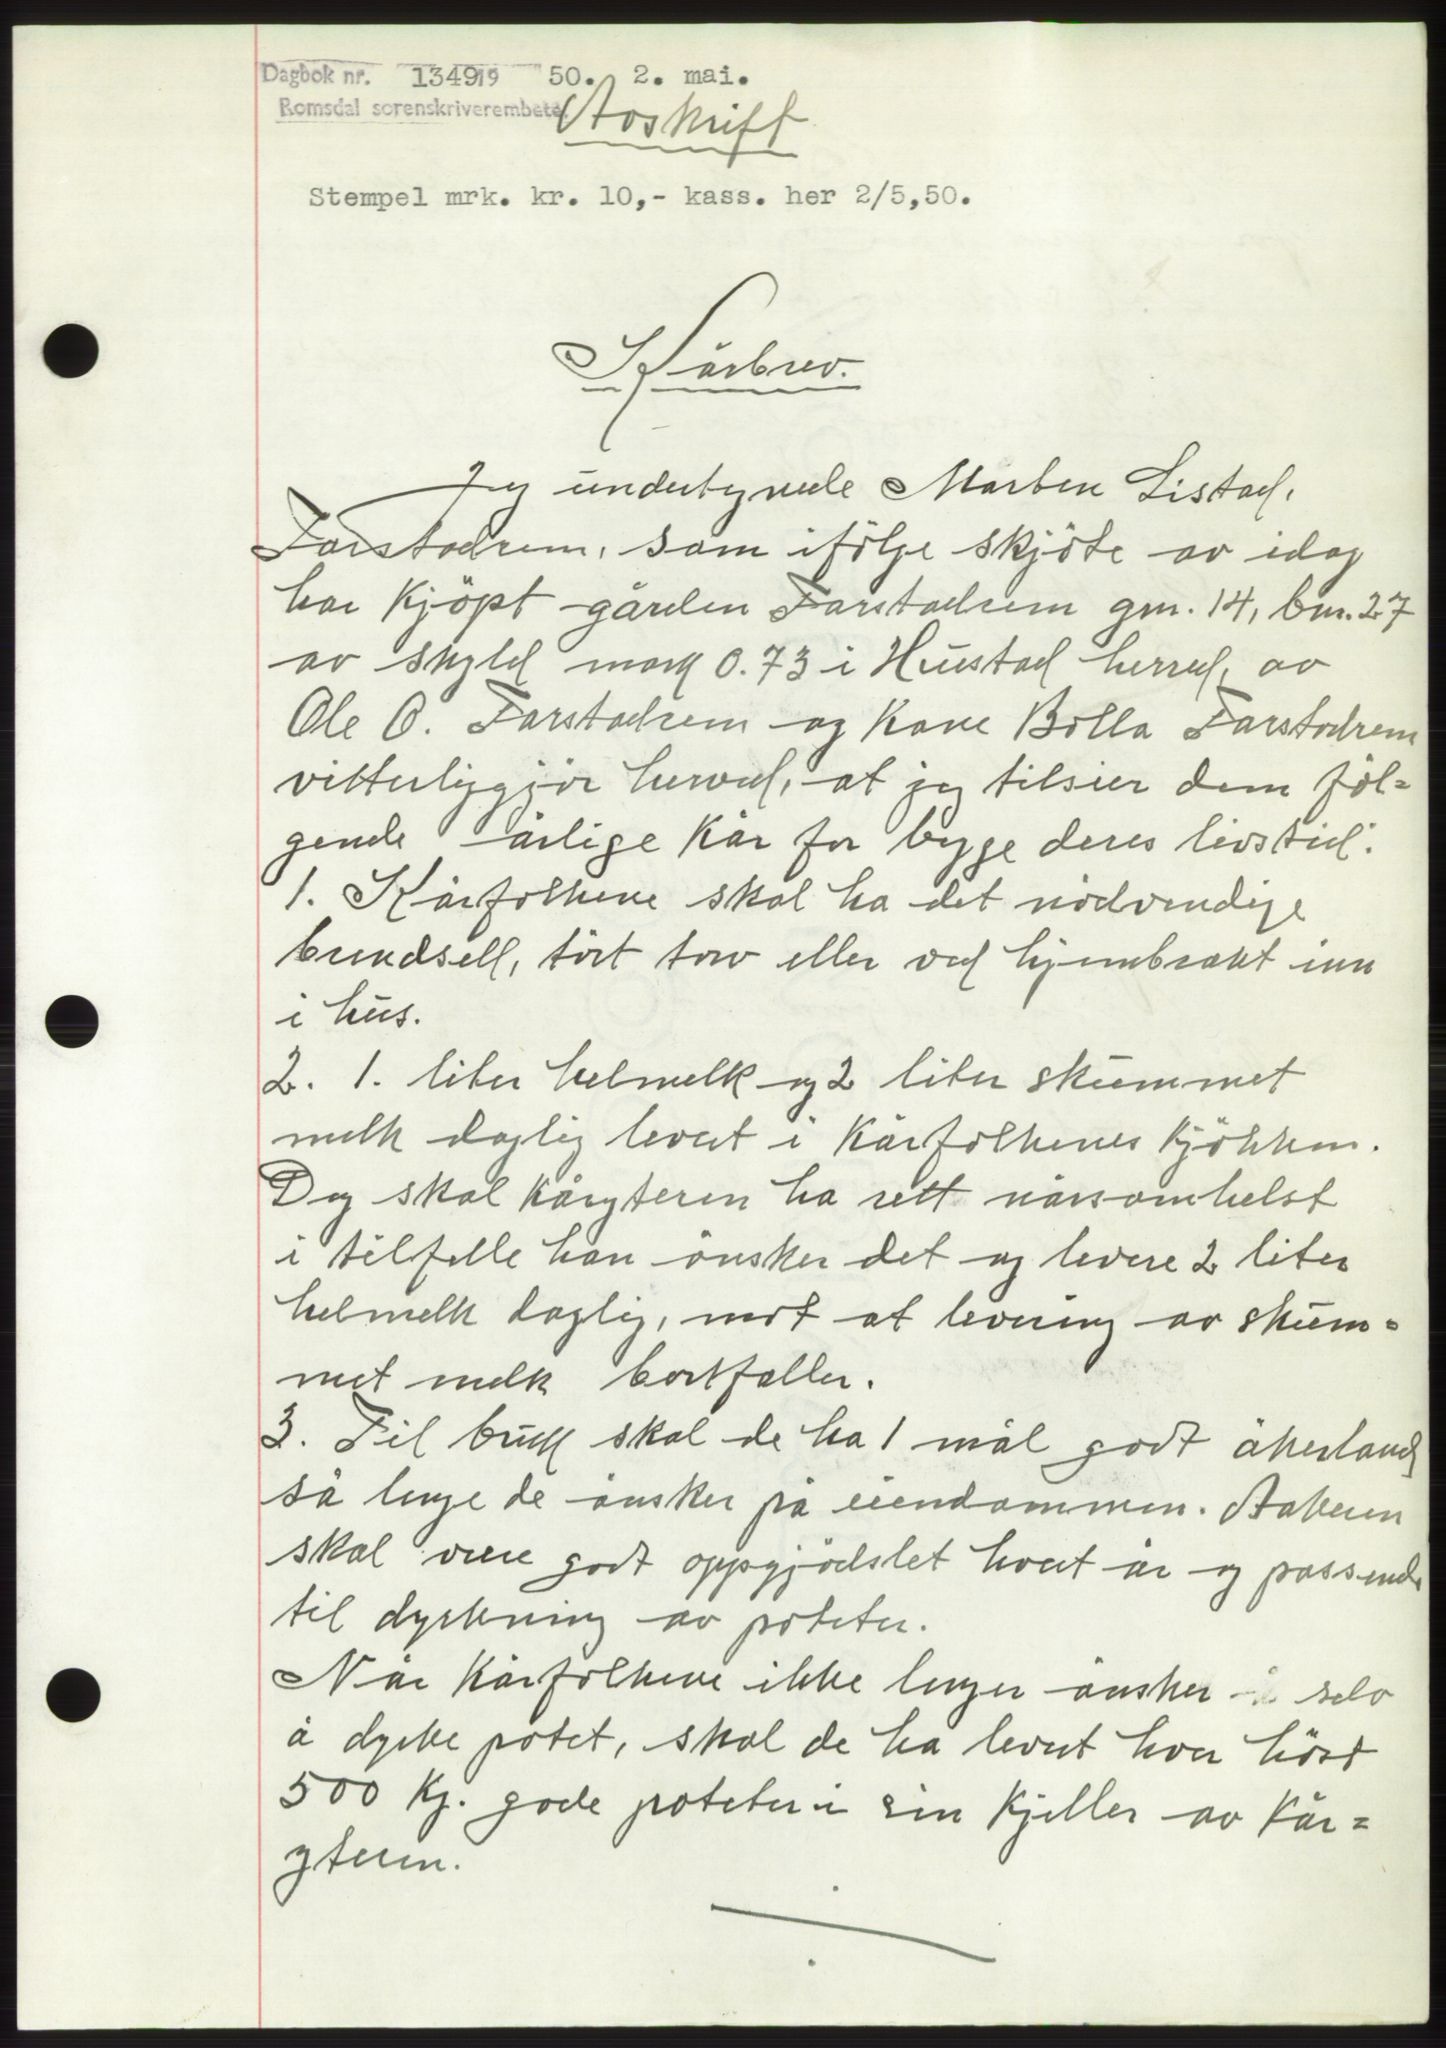 Dagbok nr. 1349 19 50. 2. mai.
Romsdal sorenskriverembete.
Avskrift
Stempel mrk. kr. 10,- kass. her 2/5,50.
Kårbrev.
Jeg undertegnede Marten Listad,
Farstadrem, som ifölge skjöte av idag
har kjöpt gården Farstadrem gnr. 14, bnr. 27
av skyld mark 0.73 i Hustad herred, av
Ole O. Farstadrem og kone Bolla Farstadrem
vitterliggjör herved, at jeg tilsier dem föl=
gende årlige kår for begge deres livstid:
1. Kårfolkene skal ha det nödvendige
brendsell, tört torv eller ved hjembrakt inn
i hus.
2. 1. liter helmelk og 2 liter skummet
melk daglig levert i kårfolkenes kjökken.
Dog skal kåryteren ha rett nårsomhelst
i tilfelle han önsker det og levere 2 liter
helmelk daglig, mot at levering av skum=
met melk bortfaller.
3. Til bruk skal de ha 1 mål godt åkerland
så lenge de önsker på eiendommen. Aakeren
skal vere godt oppgjödslet hvert år og passende
til dyrkning av poteter.
Når kårfolkene ikke lenger önsker selv
å dyrke potet, skal de ha levert hver höst
500 kg. gode poteter i sin kjeller av kår=
yteren.